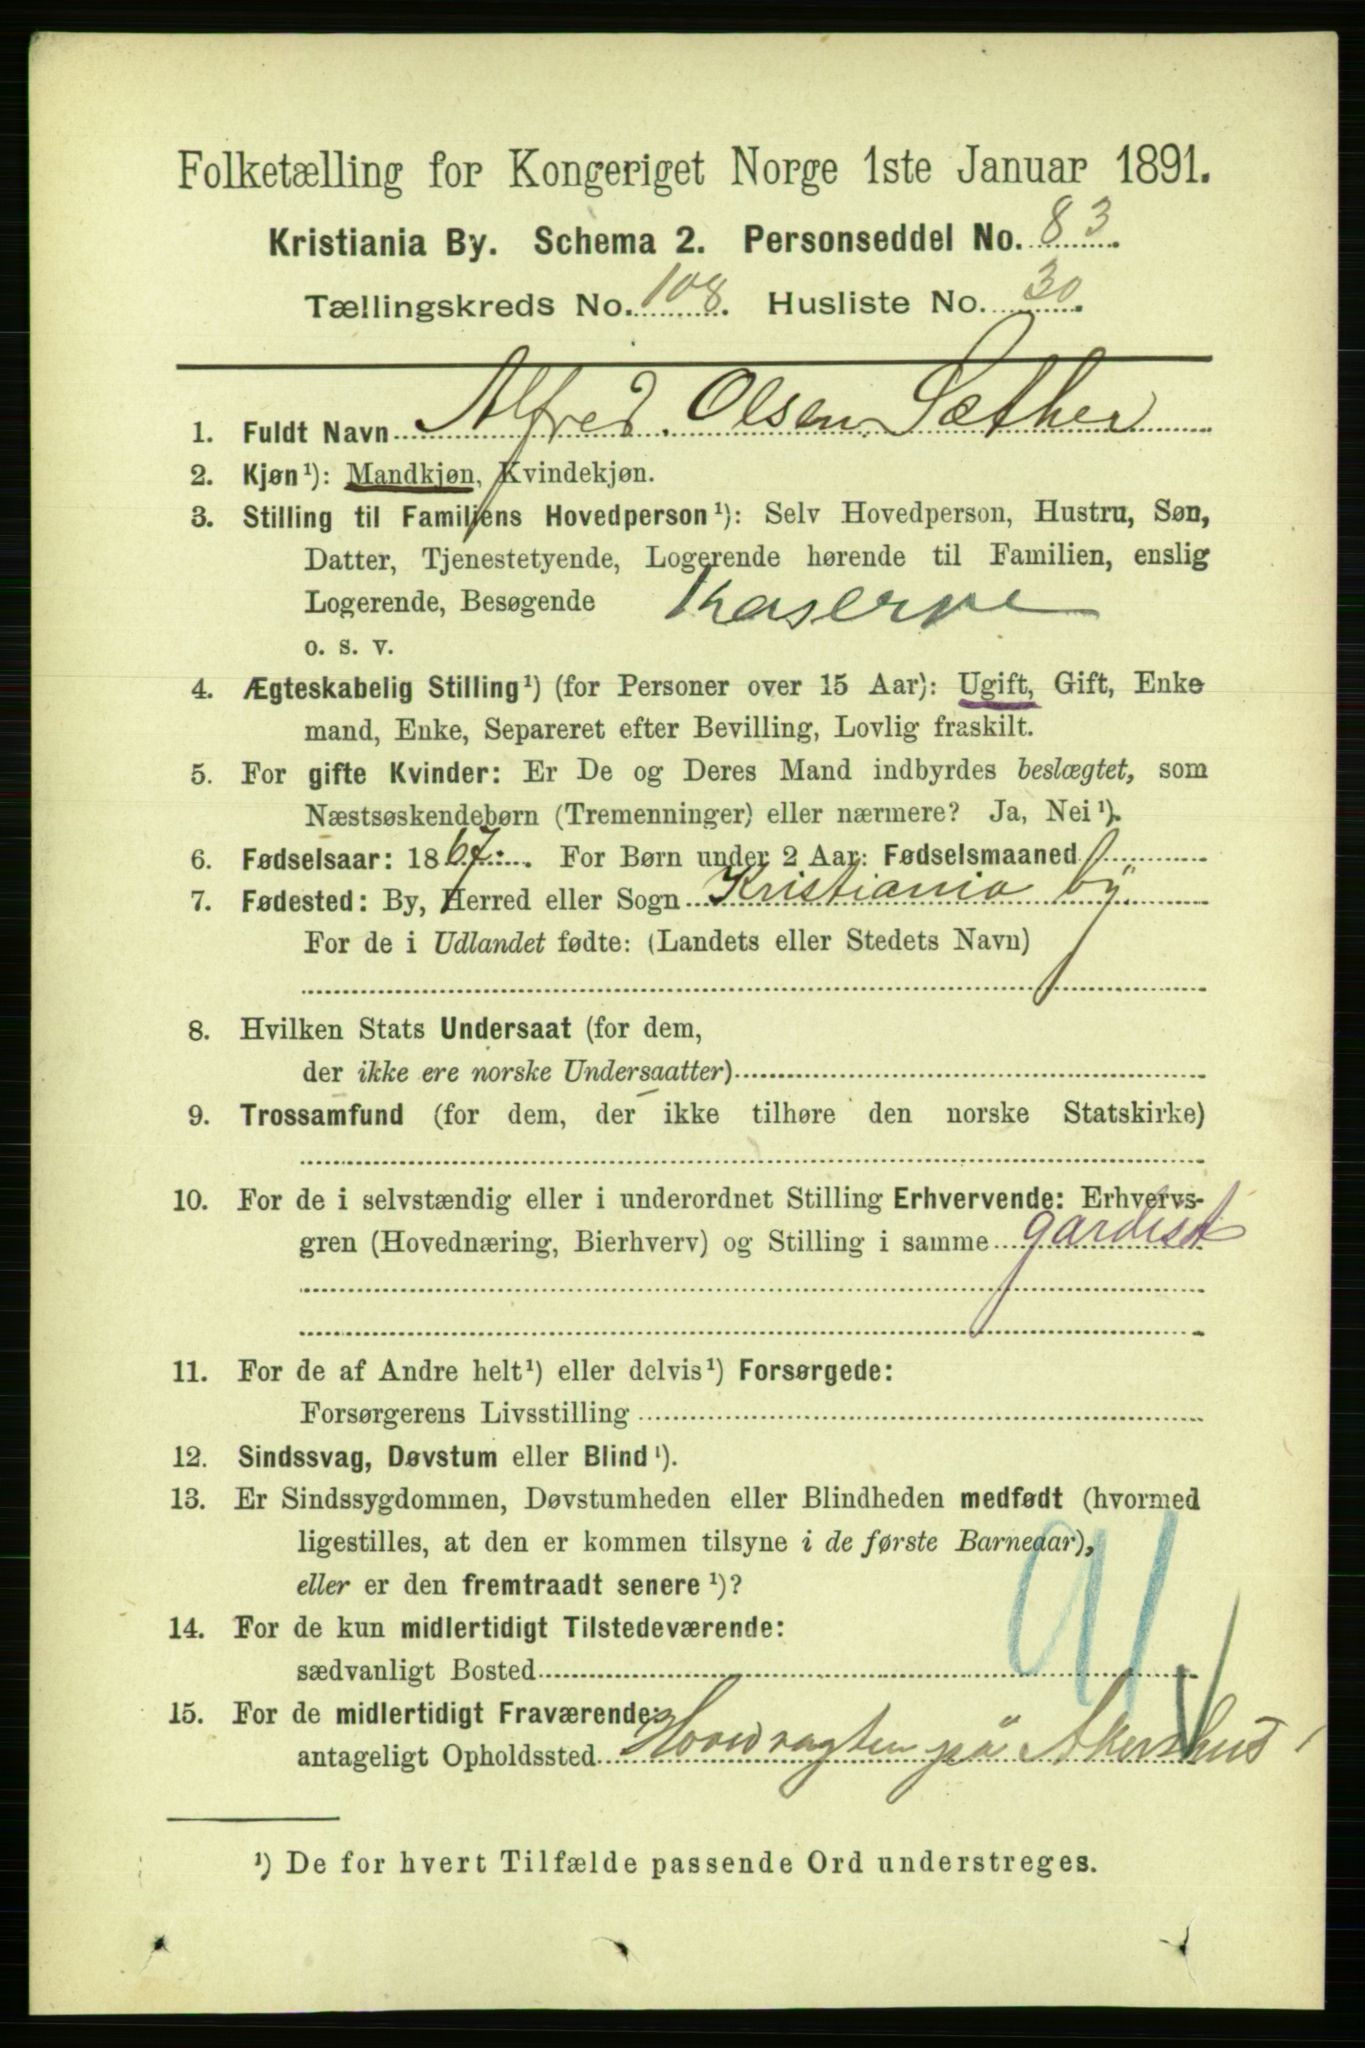 Folketælling for Kongeriget Norge 1ste Januar 1891.
Kristiania By. Schema 2. Personseddel No. 83.
Tællingskreds No. 108. Husliste No. 30.
1. Fuldt Navn Alfred. Olsen. Sæther
2. Kjøn¹): Mandkjøn, Kvindekjøn.
3. Stilling til Familjens Hovedperson¹): Selv Hovedperson, Hustru, Søn,
Datter, Tjenestetyende, Logerende hørende til Familien, enslig
Logerende, Besøgende Kaserne
o. s. v.
4. Ægteskabelig Stilling¹) (for Personer over 15 Aar): Ugift, Gift, Enke
mand, Enke, Separeret efter Bevilling, Lovlig fraskilt.
5. For gifte Kvinder: Er De og Deres Mand indbyrdes beslægtet, som
Næstsøskendebørn (Tremenninger) eller nærmere? Ja, Nei¹).
6. Fødselsaar: 1867. For Børn under 2 Aar: Fødselsmaaned
7. Fødested: By, Herred eller Sogn Kristiania by.
For de i Udlandet fødte: (Landets eller Stedets Navn)
8. Hvilken Stats Undersaat (for dem,
der ikke ere norske Undersaatter)
9. Trossamfund (for dem, der ikke tilhøre den norske Statskirke)
10. For de i selvstændig eller i underordnet Stilling Erhvervende: Erhvervs-
gren (Hovednæring, Bierhverv) og Stilling i samme gardist
11. For de af Andre helt¹) eller delvis¹) Forsørgede:
Forsørgerens Livsstilling
12. Sindssvag, Døvstum eller Blind¹).
13. Er Sindssygdommen, Døvstumheden eller Blindheden medfødt (hvormed
ligestilles, at den er kommen tilsyne i de første Barneaar),
eller er den fremtraadt senere¹)?
91
14. For de kun midlertidigt Tilstedeværende:
sædvanligt Bosted
15. For de midlertidigt Fraværende:
antageligt Opholdssted Hovedvagten på Akershus
¹) De for hvert Tilfælde passende Ord understreges.